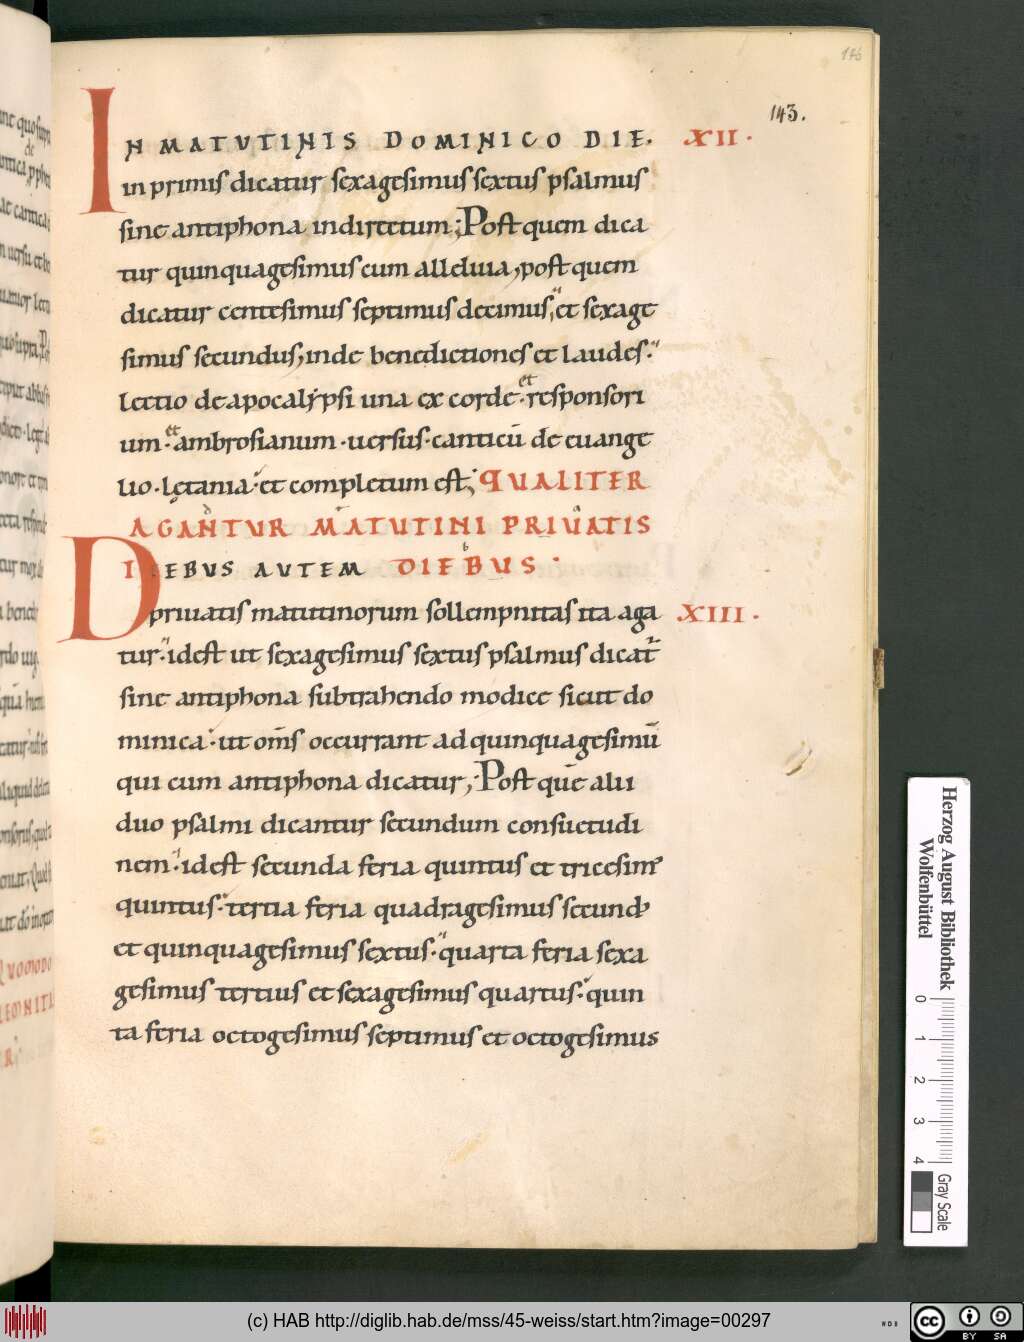 146
143.
IN MATUTINIS DOMINICO DIE. XII.
in primis dicatur sexagesimus sextus psalmus
sine antiphona indirectum; Post quem dica
tur quinquagesimus cum alleluia, post quem
dicatur centesimus septimus decimus, et sexage
simus secundus, inde benedictiones et laudes.
Lectio de apocalypsi una ex corde· et responsori
um· et ambrosianum· uersus· canticū de euange
lio· lętania· et completum est; QUALITER
AGANTUR MATUTINI PRIUATIS
DIEBUS AUTEM DIEBUS·
priuatis matutinorum sollempnitas ita aga XIII.
tur· idest ut sexagesimus sextus psalmus dicat̄
sine antiphona subtrahendo modice sicut do
minica· ut om̄s occurrant ad quinquagesimū
qui cum antiphona dicatur; Post quē alii
duo psalmi dicantur secundum consuetudi
nem· idest secunda feria quintus et tricesim᾽
quintus· tertia feria quadragesimus secund᾽
et quinquagesimus sextus· quarta feria sexa
gesimus tertius et sexagesimus quartus· quin
ta feria octogesimus septimus et octogesimus
Herzog August Bibliothek
Wolfenbüttel
0 1 2 3 4
Gray Scale
(c) HAB http://diglib.hab.de/mss/45-weiss/start.htm?image=00297
cc BY SA